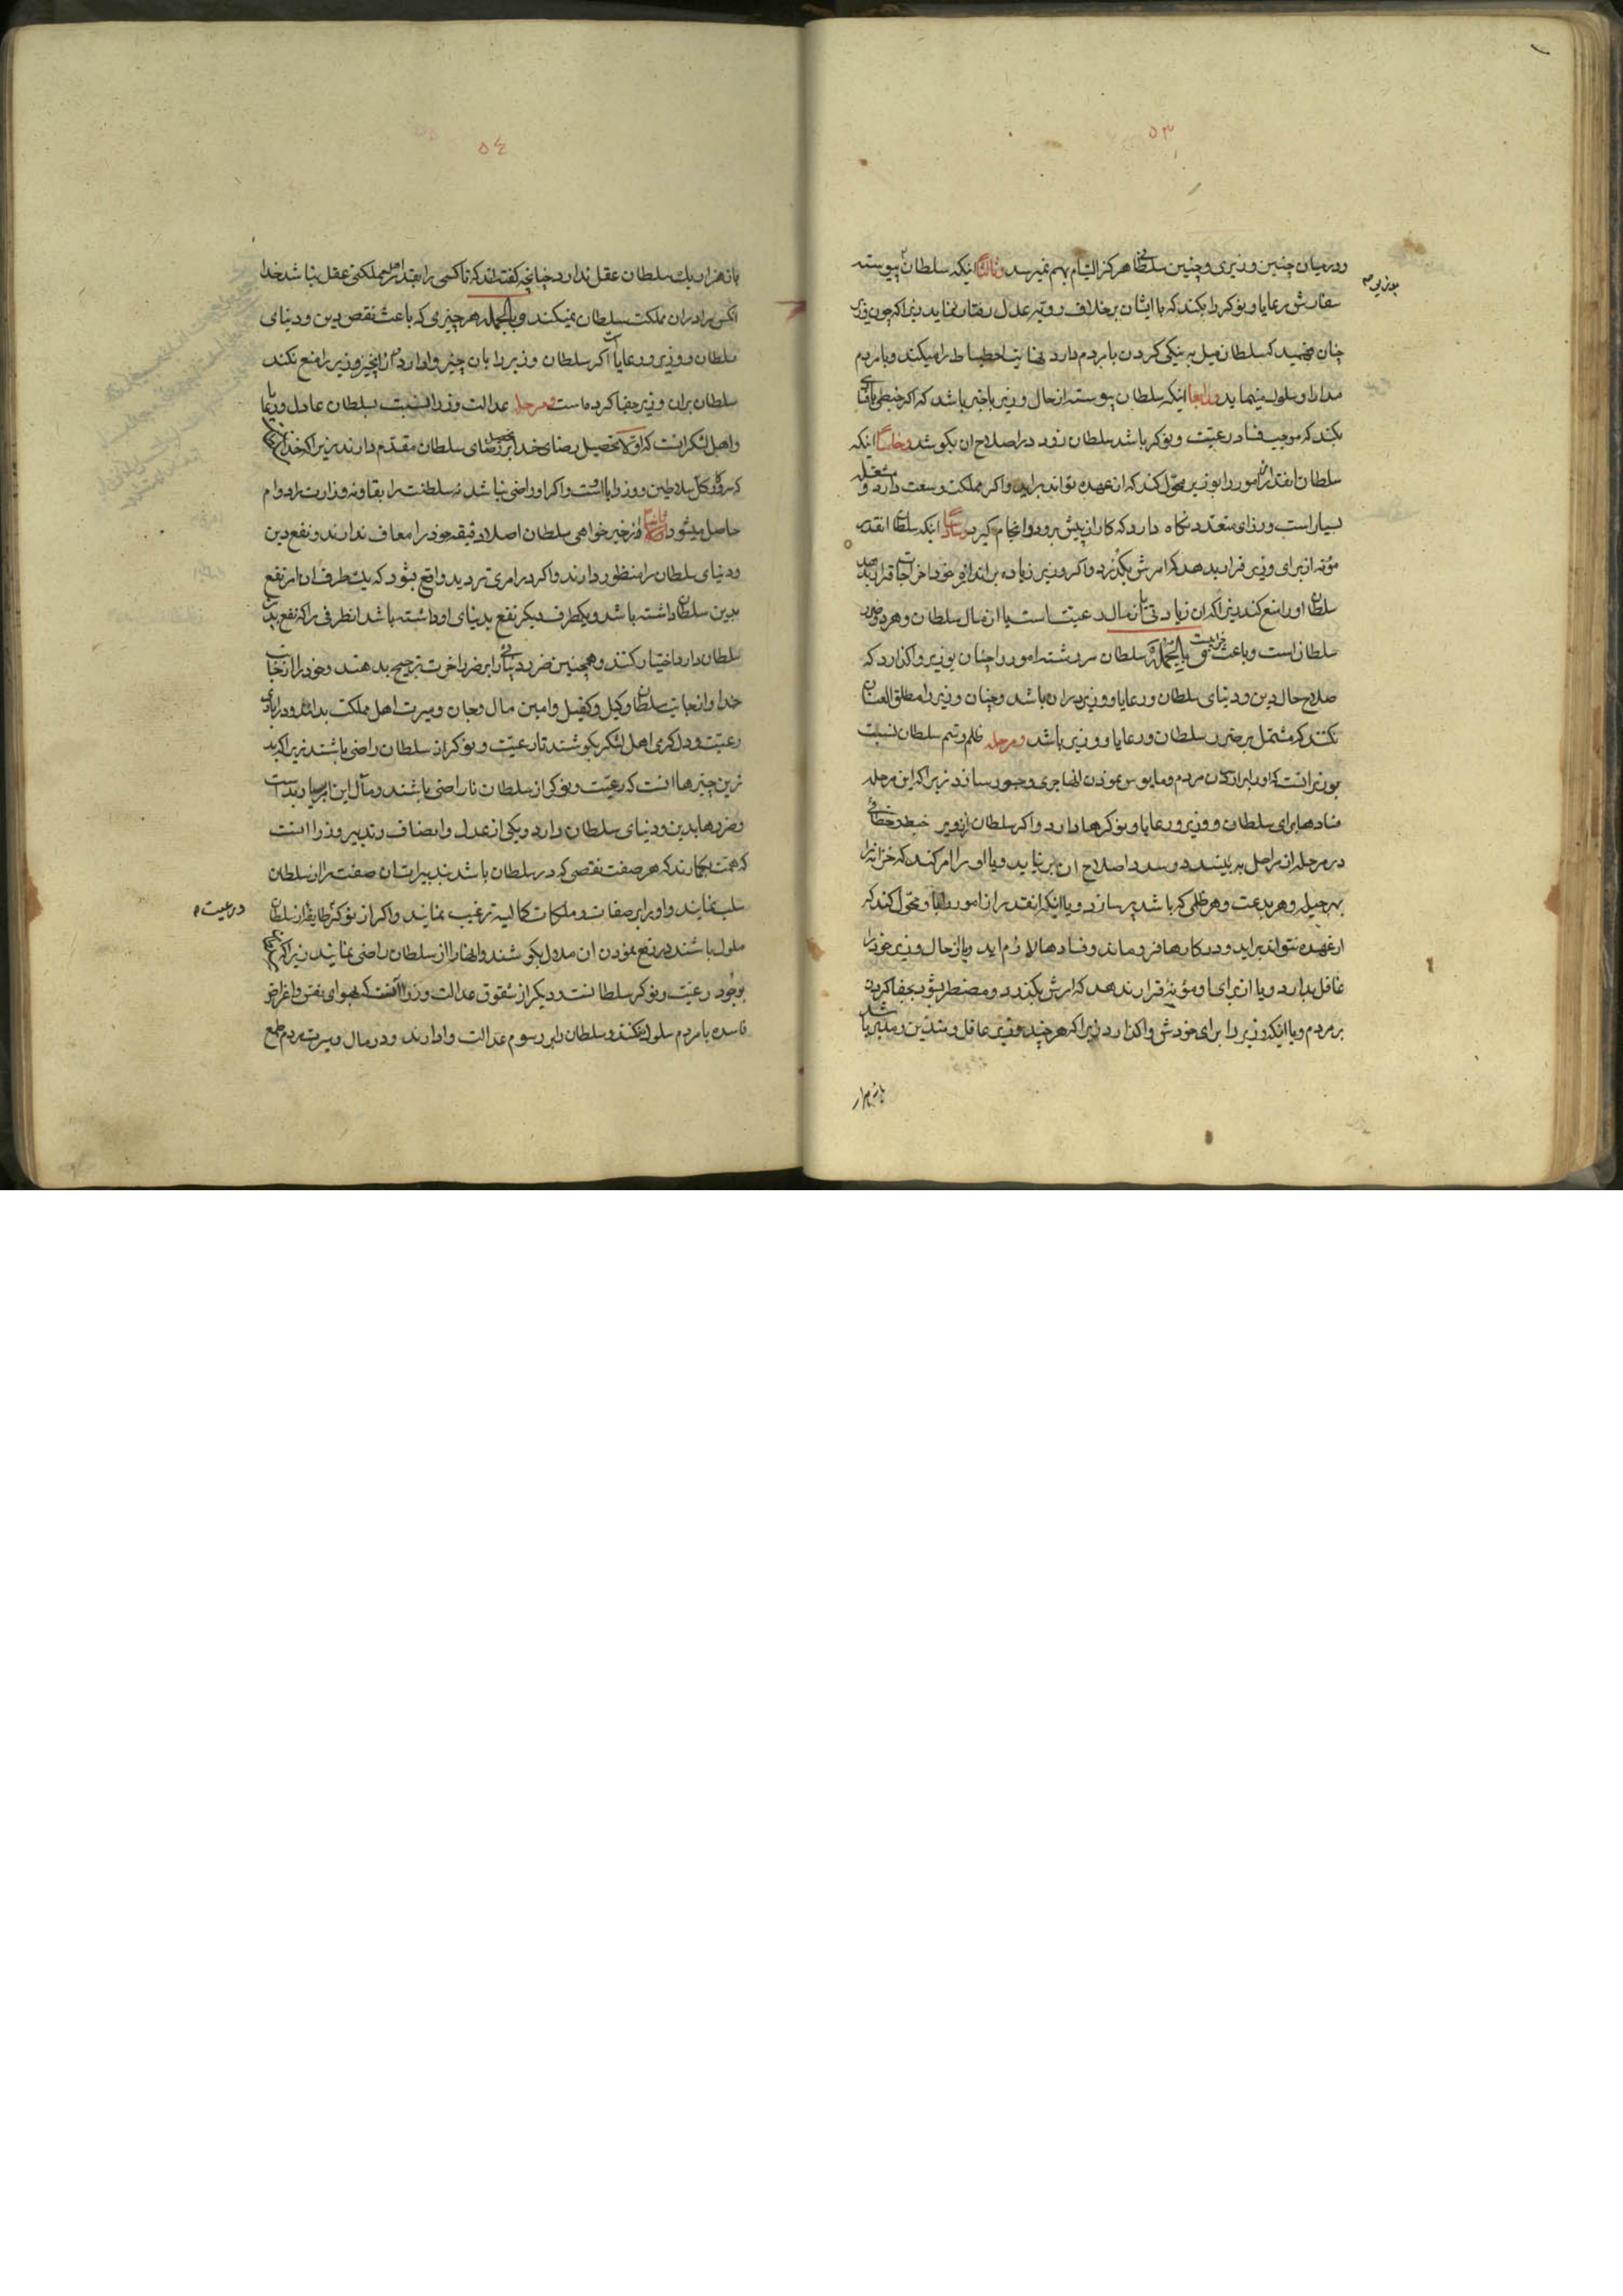 ٥٣
و در میان چنین وزیری و چنین سلطانی هرگز التیام بهم نمیرسد و ثالثا اینکه سلطان پیوسته
بوزیر
سفارش رعایا و نوکر را بکند که با ایشان بر خلاف رویه عدل رفتار ننماید زیرا که چون وزیر
چنان فهمید که سلطان میل به نیکی کردن با مردم دارد نهایت احتیاط را میکند و با مردم
مدارا و سلوک مینماید و رابعا اینکه سلطان پیوسته از حال وزیر با خبر باشد که اگر خبطی یا
بکند که موجب فساد رعیت و نوکر باشد سلطان زود در اصلاح ان بکوشد و خامسا اینکه
سلطان انقدر امور را بوزیر محول کند که از عهده تواند براید و اگر مملکت وسعت دارد و مشغله
بسیار است وزرای متعدد نگاه دارد که کار از پیش برود و انجام گیرد و سادسا اینکه سلطان انقدر
مؤنه از برای وزیر قرار بدهد که امرش بگذرد و اگر وزیر زیاده بر اندازه خود اخراجات قرار بدهد
سلطان او را منع کند زیرا که ان زیادتی یا از مال رعیت است یا از مال سلطان و هر دو ضرر
سلطان است و باعث خرابیست و بالجمله سلطان سر رشته امور را چنان بوزیر واگذارد که
صلاح حال دین و دنیای سلطان و رعایا و وزیر در ان باشد و چنان وزیر را مطلق العنان
نکند که مشتمل بر ضرر سلطان و رعایا و وزیر باشد و مرحله ظلم و ستم سلطان نسبت
بوزیر انست که او را بر ازردن مردم و مایوس نمودن انها جری و جسور سازد زیرا که این مرحله
فسادها برای سلطان و وزیر و رعایا و نوکرها دارد و اگر سلطان از وزیر خبط و خطائی
در مرحله از مراحل به بیند در صدد اصلاح ان بر نیاید و یا او را امر کند که خزانه را
بهر حیله و هر بدعت و هر ظلمی که باشد پر سازد و یا اینکه انقدر از امور را باو محول کند که
از عهده نتواند براید و در کارها فرو ماند و فسادها لازم اید و یا از حال وزیر خود را
غافل بدارد و یا از برای او مؤنه قرار ندهد که امرش بگذرد و مضطر شود بجفا کردن
بر مردم و یا اینکه وزیر را برای خودش واگذارد زیرا که هر چند وزیر عاقل و متدین و مدبر باشد
باز هزار
٥٤
باز هزار یک سلطان عقل ندارد چنانچه گفته‌اند که تا کسی را بقدر اهل مملکتی عقل نباشد خدا
انکس را در ان مملکت سلطان نمیکند و بالجمله هر چیزی که باعث نقص دین و دنیای
سلطان و وزیر و رعایا است اگر سلطان وزیر را بان چیز وادارد و از انچیز وزیر را منع نکند
سلطان بران وزیر جفا کرده است و مرحله عدالت وزرا نسبت بسلطان عادل و رعایا
و اهل لشکر انست که اولا تحصیل رضای خدا را بر تحصیل رضای سلطان مقدم دارند زیرا که خدا
که بزرگ کل سلاطین و وزرایا است و اگر او راضی نباشد نه سلطنت را بقا و نه وزارت را دوام
حاصل میشود و ثانیا از خیر خواهی سلطان اصلا دقیقه خود را معاف ندارند و نفع دین
و دنیای سلطان را منظور دارند و اگر در امری تردید واقع شود که یکطرف ان امر نفع
بدین سلطان داشته باشد و یکطرف دیگر نفع بدنیای او داشته باشد انطرفی را که نفع بدین
سلطان دارد اختیار کنند و همچنین ضرر دنیائی را بر ضرر اخرت ترجیح بدهند و خود را از جانب
خدا و از جانب سلطان وکیل و کفیل و امین مال و جان و سیرت اهل مملکت بدانند و در ابادی
رعیت و دل گرمی اهل لشکر بکوشند تا رعیت و نوکر از سلطان راضی باشند زیرا که بد
ترین چیزها انست که رعیت و نوکر از سلطان ناراضی باشند و مآل این امر بسیار بد است
و ضررها بدین و دنیای سلطان دارد و یکی از عدل و انصاف و تدبیر وزرا انست
که همت بگمارند که هر صفت نقصی که در سلطان باشد بتدبیرات ان صفت را از سلطان
سلب نمایند و او را بر صفات و ملکات کمالیه ترغیب نمایند و اگر از نوکر طایفه از سلطان
و رعیت
ملول باشند در رفع نمودن ان ملال بکوشند و انها را از سلطان راضی نمایند زیرا که
بوجود رعیت و نوکر سلطانست و دیگر از شقوق عدالت وزرا انست که بهوای نفس و اغراض
فاسده با مردم سلوک نکنند و سلطان را بر رسوم عدالت وادارند و در مال و سیرت مردم طمع